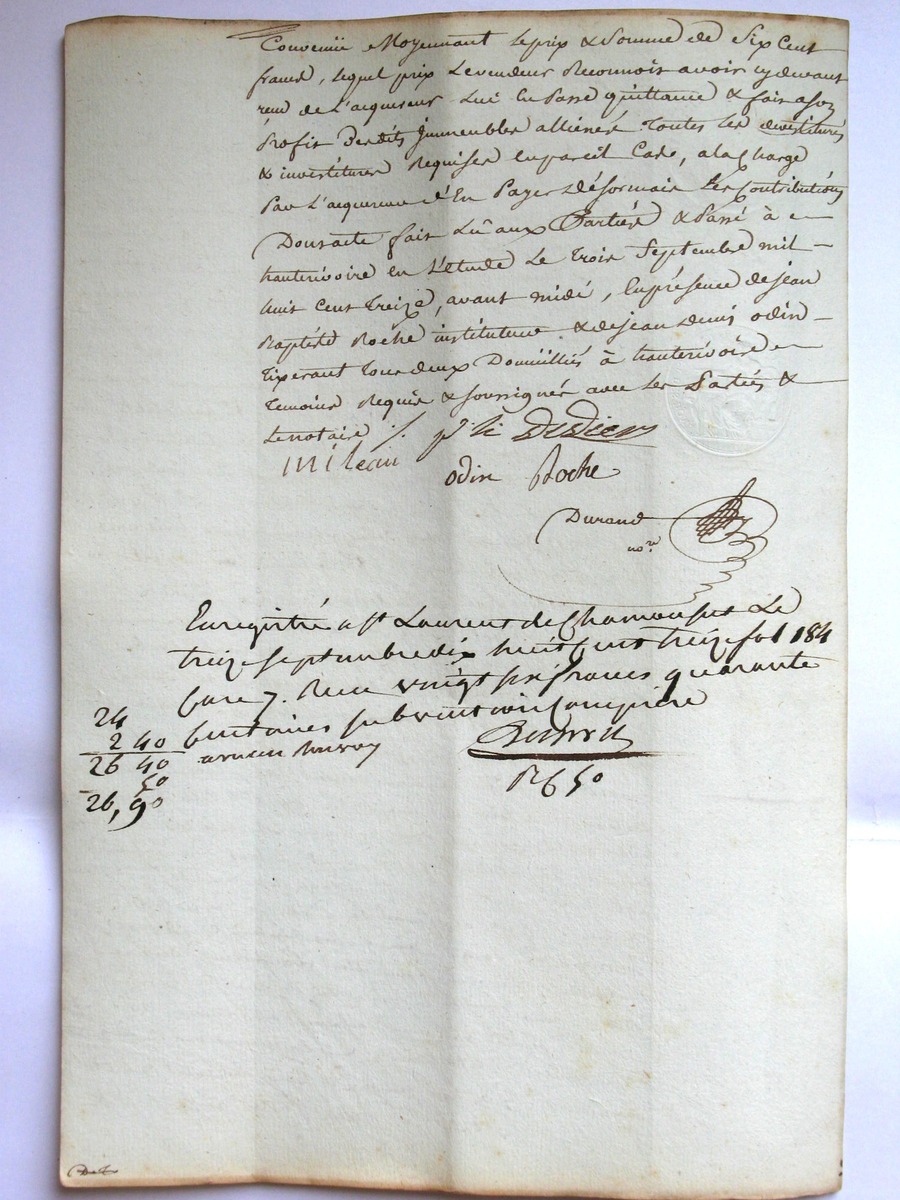 Convenü Moyennant Leprix & Somme de Six Cent
francs, lequel prix Levendeur Reconnois avoir cydevant
reçu de L'acquereur Lui En Passe quittance & fais a son
Profit Desdits Immeubles alliénés Toutes les devestitures
& investitures Requises Enpareil Cas, a la Charge
Par L'acquereur d'En Payer Désormais Les Contributions
Dont acte fait Lû aux Parties & Passé à
hauterivoire en L'étude Le Trois Septembre mil
huit Cent Treize, avant midi, En présence de jean
Baptiste Roche instituteur & de jean denis odin
Tixerant Tous deux Domiciliés à hauterivoire
Temoins Requis & soussignés avec Les Parties &
Lenotaire
odin Roche
Durand
no.re
Enregistré a st Laurent de Chamousset Le
treize septembre dix huit cent treize fol 184
Case 7. Recu vingt six francs quarante
Centaimes subvention Comprise
24
2 40
26 40
50
26,90
R 6 50